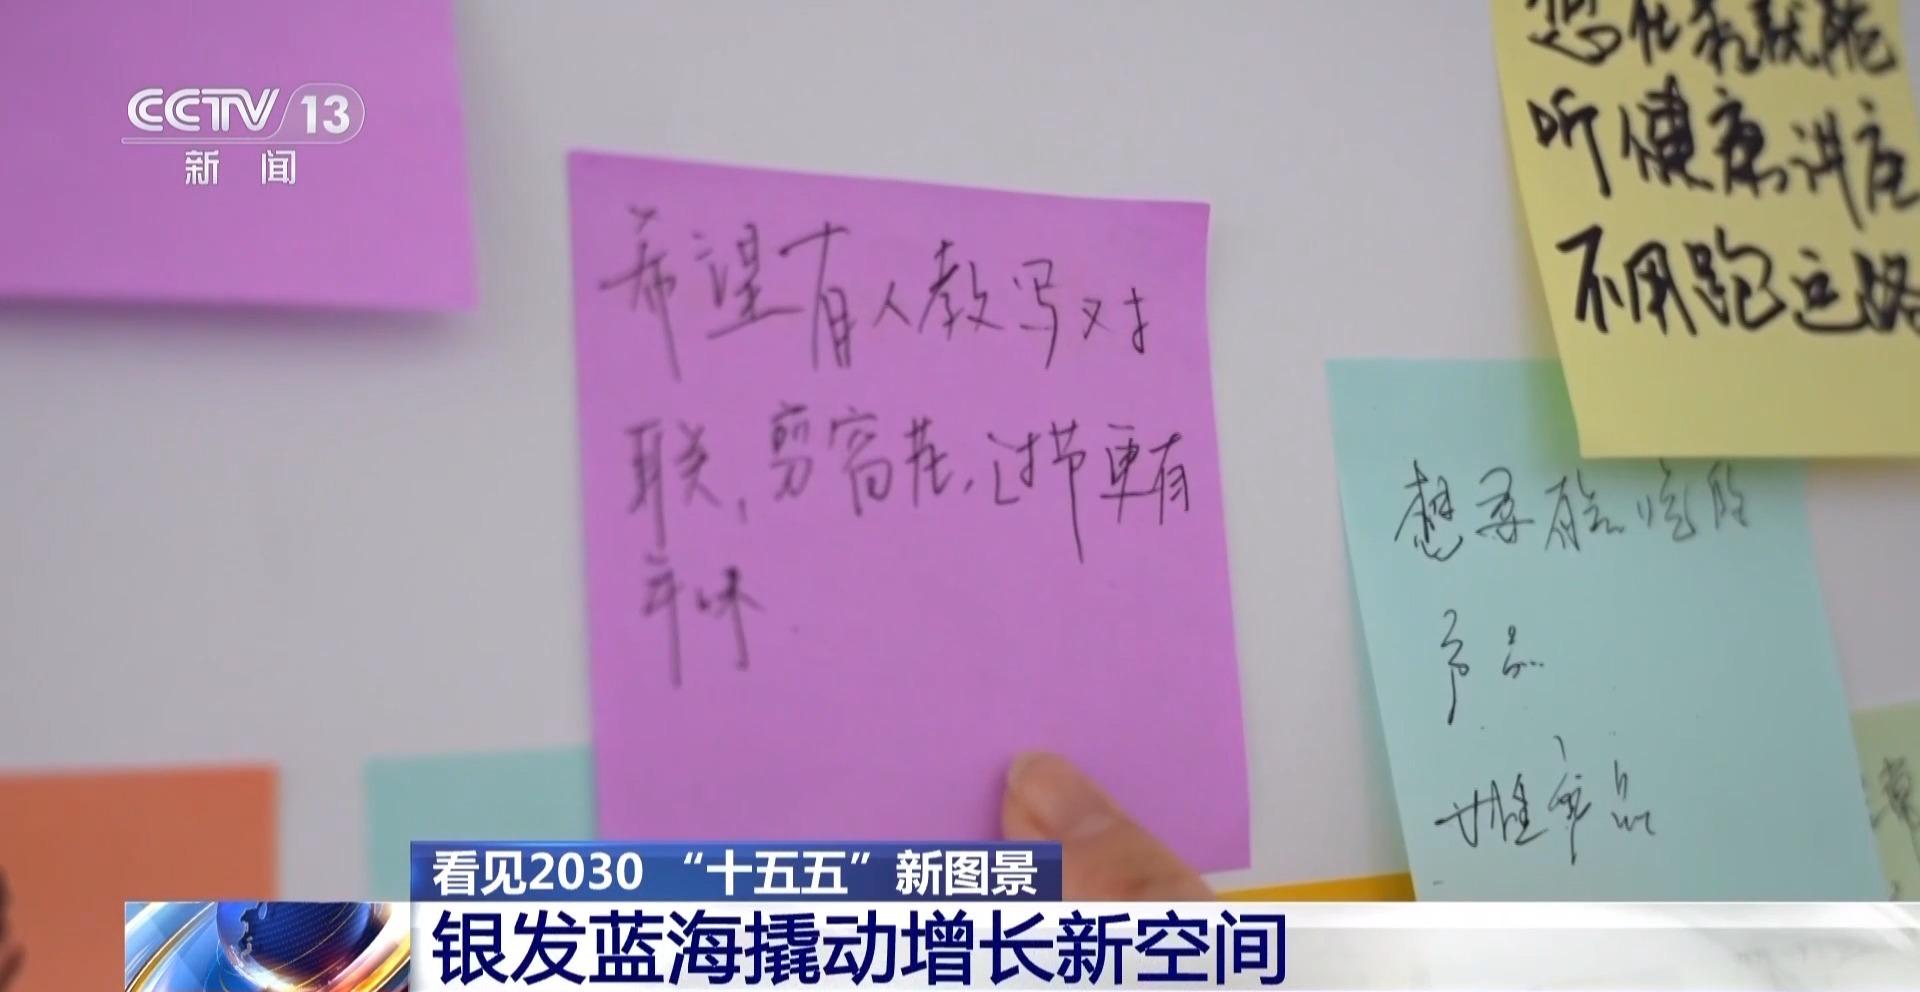 CCTV 13
新闻
希望有人教写对
联，剪窗花，过节更有
年味
听健康讲座
不用跑远路
想
产品
品
看见2030 “十五五”新图景
银发蓝海撬动增长新空间